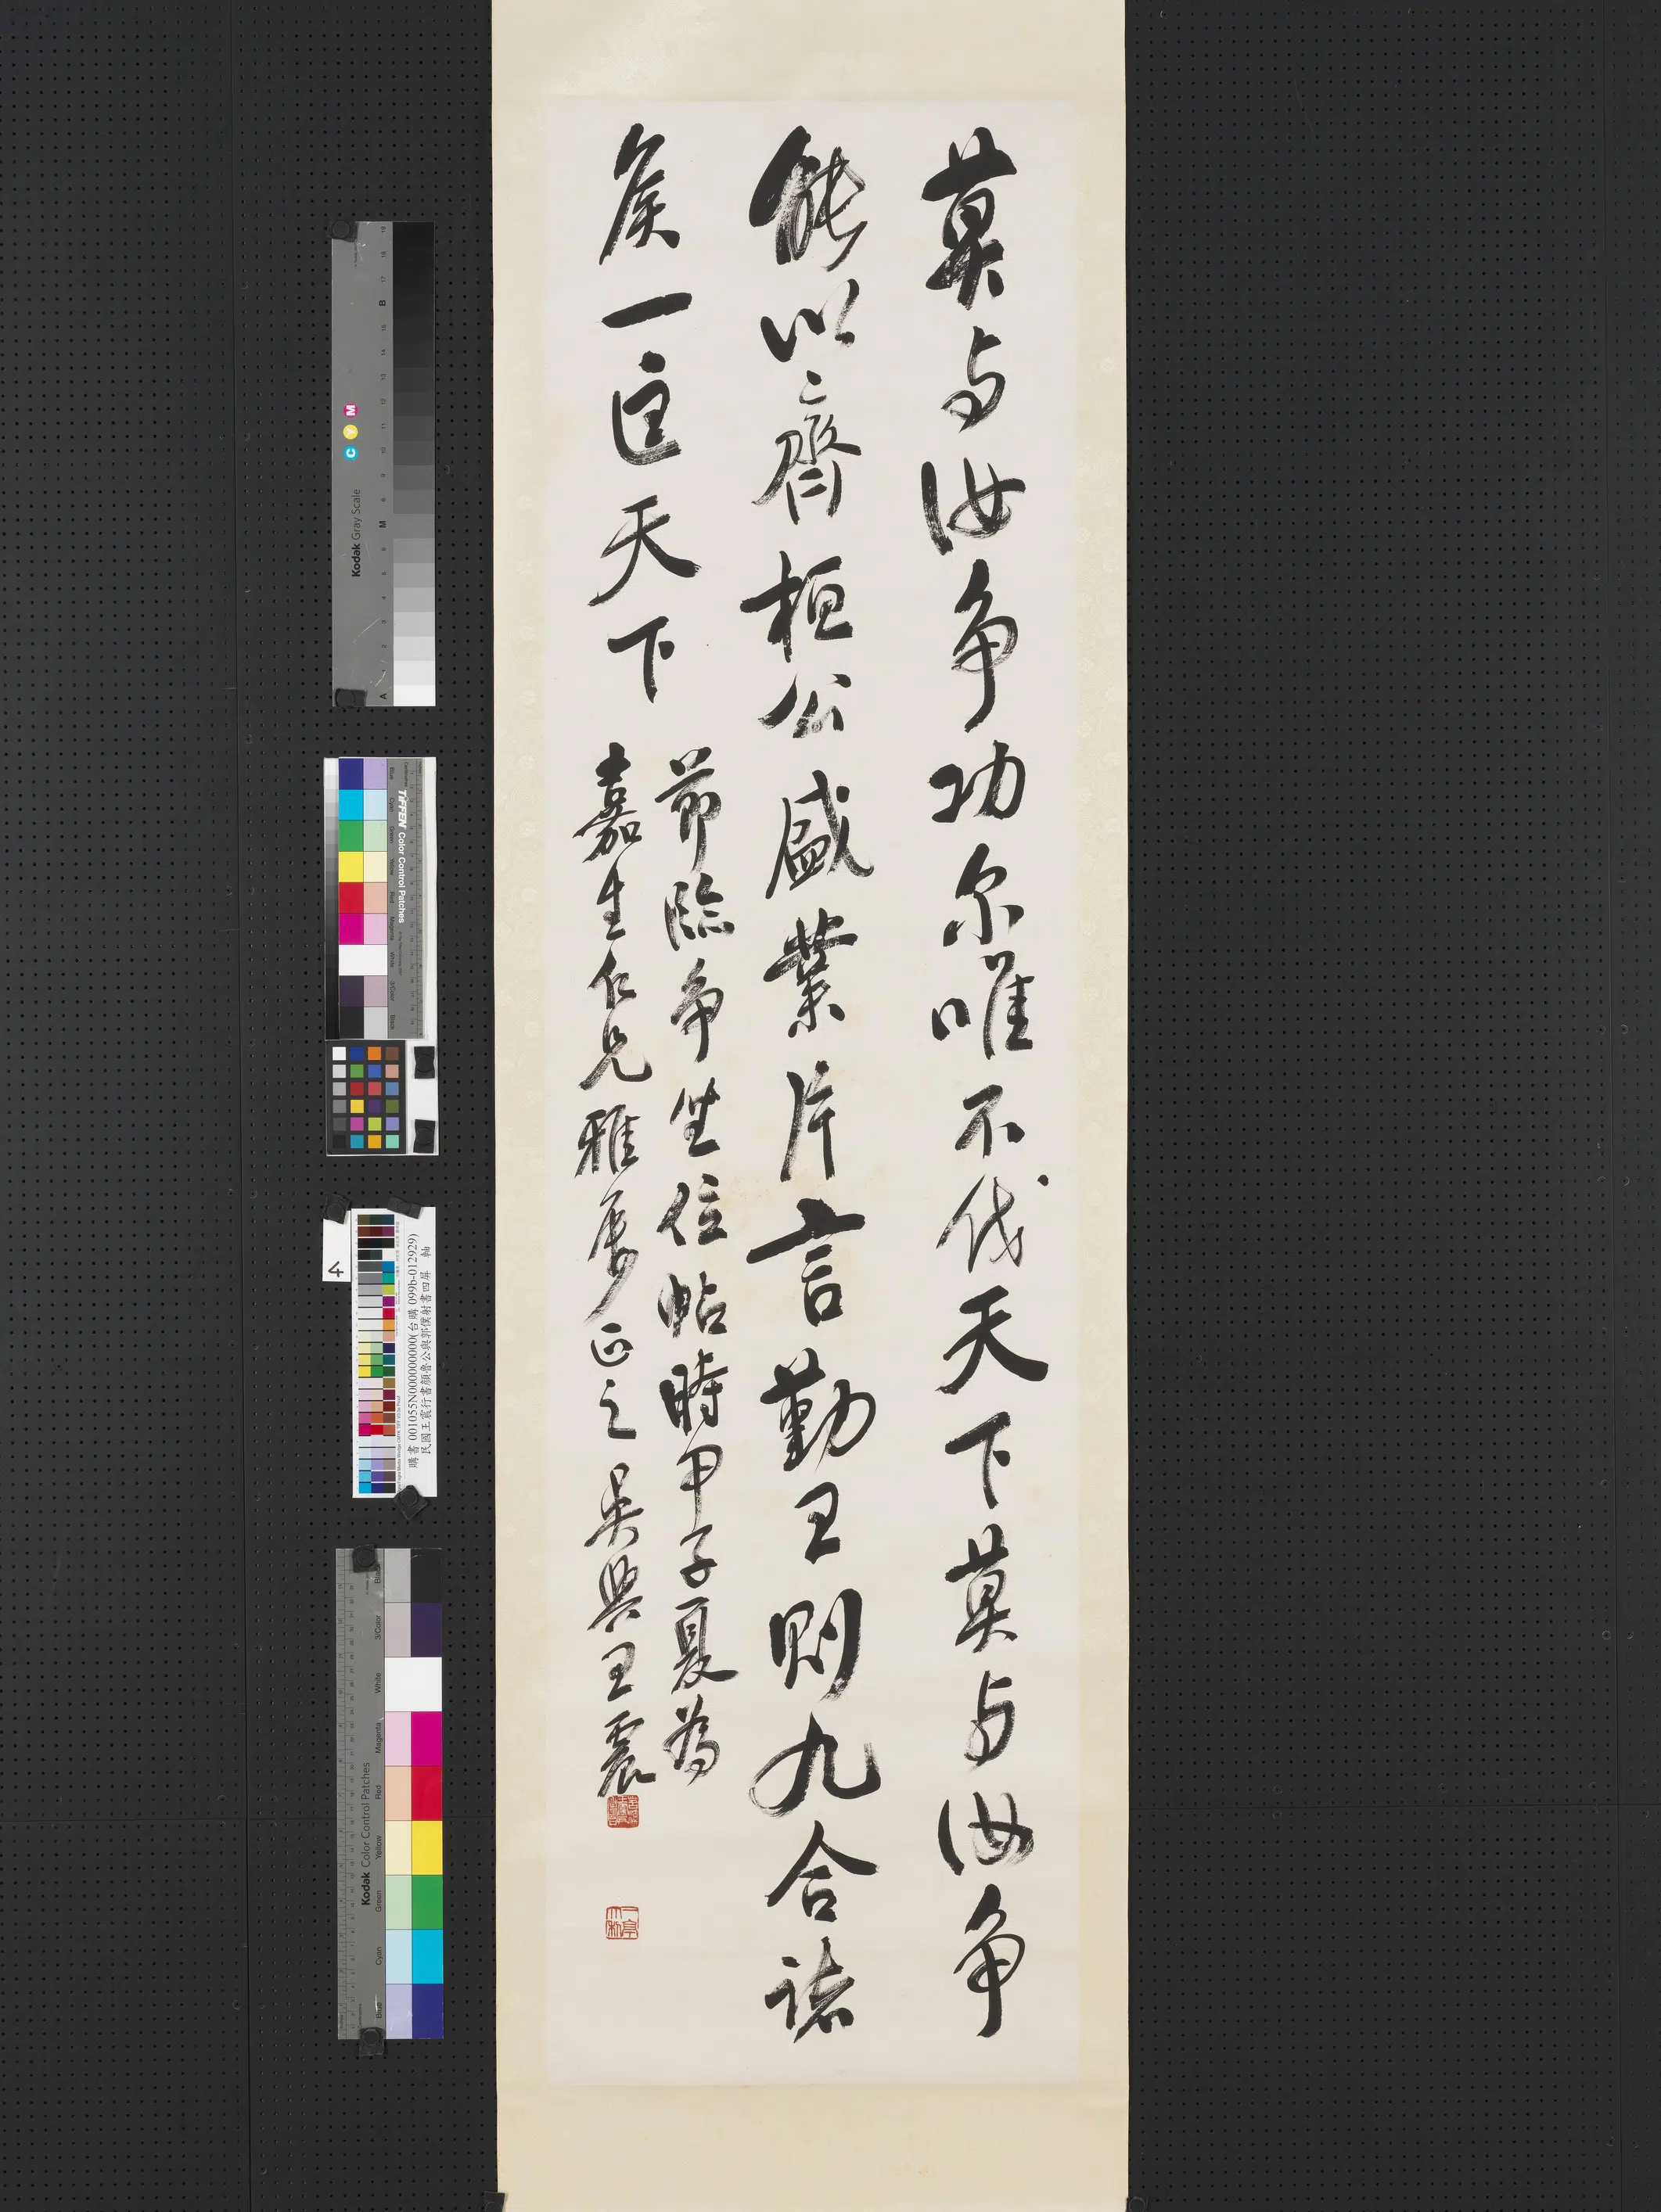 莫与汝争功尔唯不伐天下莫与汝争
能以齊桓公盛業片言勤王則九合諸
侯一匡天下
節臨争坐位帖時甲子夏為
嘉生仁兄雅屬正之 吳興王震
一亭
Kodak Gray Scale
C Y M
A 1 2 3 4 5 6 M 8 9 10 11 12 13 14 15 B 17 18 19
TIFFEN Color Control Patches
4
購書 001055N000000000(台購 099b-012929)
民國王震行書顏魯公與郭僕射書四屏 軸
Kodak Color Control Patches
Blue Cyan Green Yellow Red Magenta White 3/Color Black